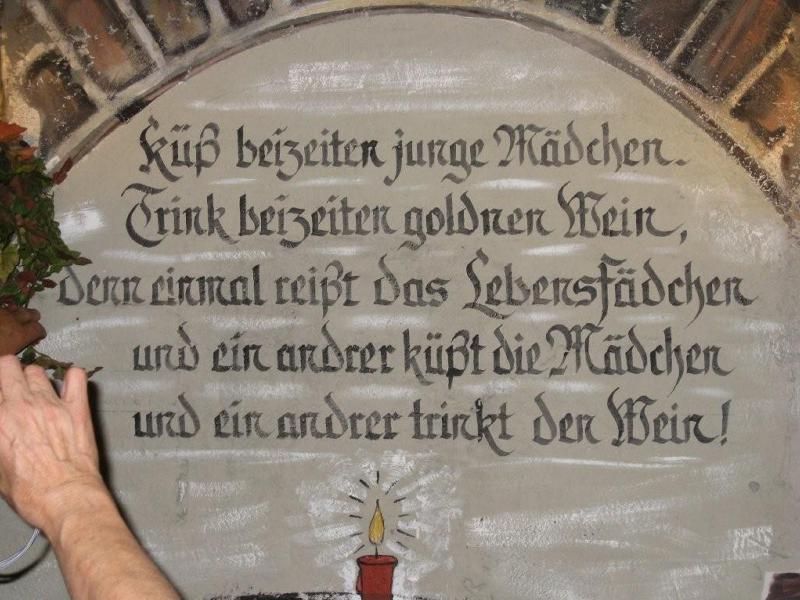 Küß beizeiten junge Mädchen.
Trink beizeiten goldnen Wein,
denn einmal reißt das Lebensfädchen
und ein andrer küßt die Mädchen
und ein andrer trinkt den Wein!